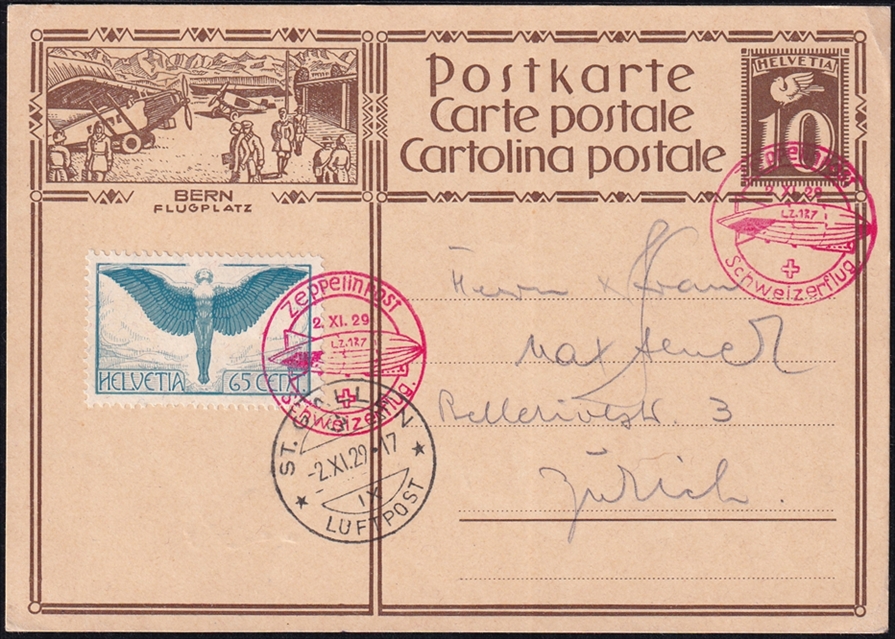 Postkarte
Carte postale
Cartolina postale
HELVETIA
10
BERN
FLUGPLATZ
Zeppelinpost
2.XI.29
L.Z.127
Schweizerflug.
HELVETIA 65 CENT.
Zeppelinpost
2.XI.29
L.Z.127
Schweizerflug.
ST. GALLEN
-2.XI.29·17
IX
LUFTPOST
Herrn & Frau
Max
3
Zürich.